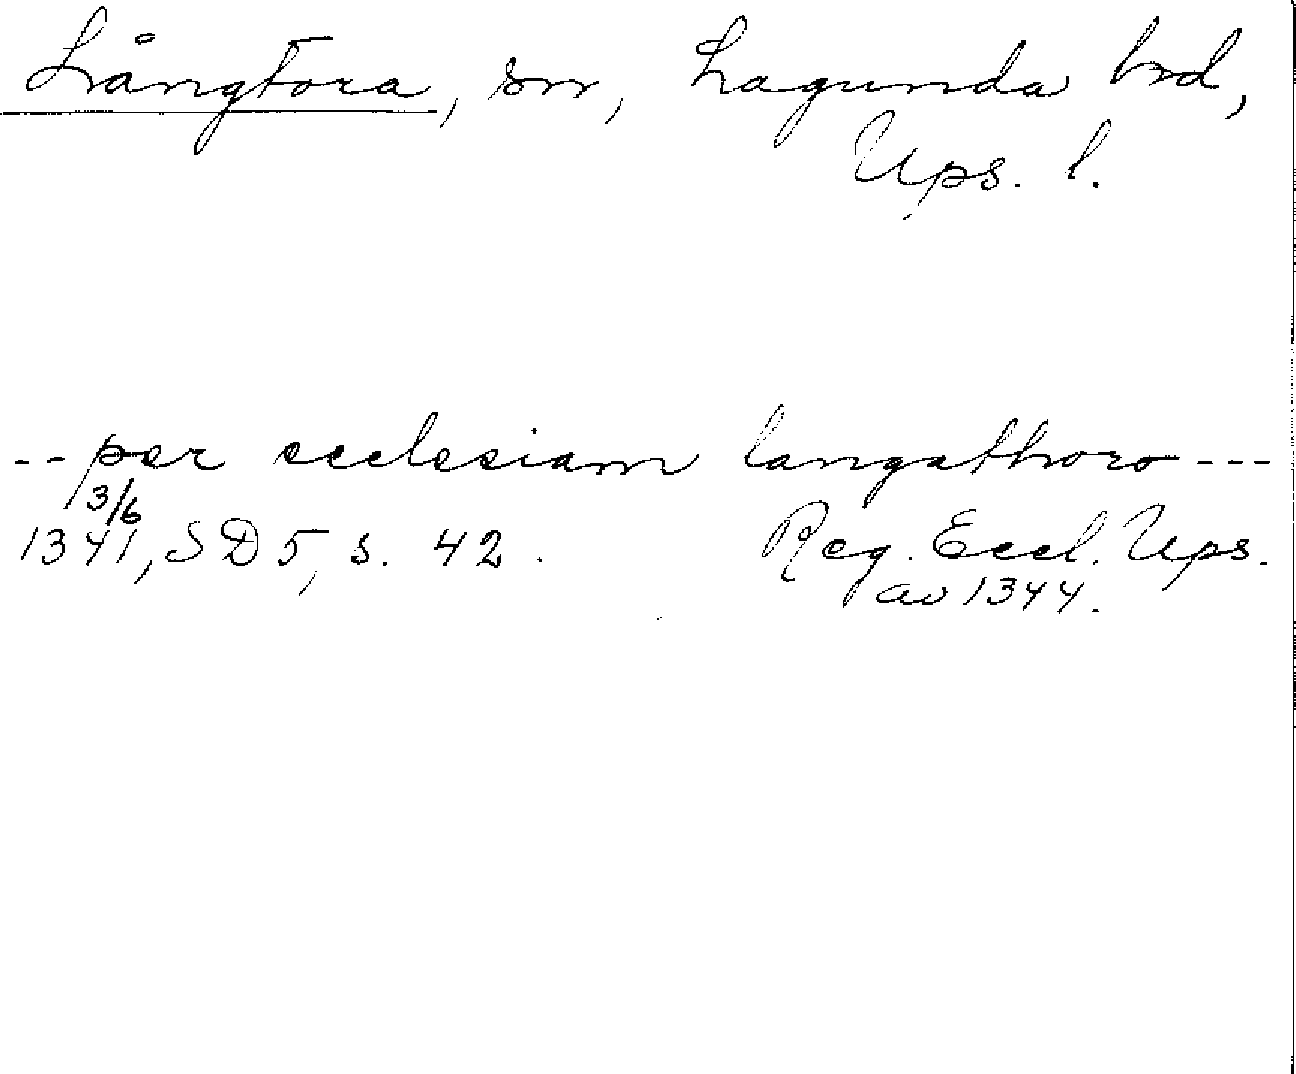 Långtora, sn, Lagunda hd,
Ups. l.
-- per ecclesiam langathoro ---
3/6
1341, SD 5, s. 42. Reg. Eccl. Ups.
av 1344.